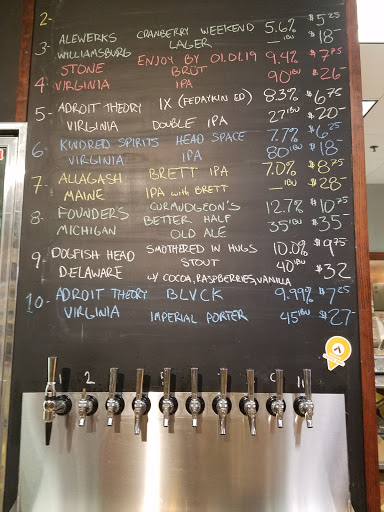 2-
3- ALEWERKS CRANBERRY WEEKEND 5.6% $5.25
WILLIAMSBURG LAGER —IBU $18-
4- STONE ENJOY BY 01.01.19 9.4% $7.75
VIRGINIA BRUT IPA 90IBU $26-
5- ADROIT THEORY IX (FEDAYKIN ED) 8.3% $6.75
VIRGINIA DOUBLE IPA 27IBU $20-
6- KINDRED SPIRITS HEAD SPACE 7.7% $6.25
VIRGINIA IPA 80IBU $18-
7- ALLAGASH BRETT IPA 7.0% $8.75
MAINE IPA with BRETT —IBU $28-
8- FOUNDERS CURMUDGEON'S 12.7% $10.75
MICHIGAN BETTER HALF OLD ALE 35IBU $35-
9- DOGFISH HEAD SMOTHERED IN HUGS 10.0% $9.75
DELAWARE STOUT 40IBU $32
W/ COCOA, RASPBERRIES, VANILLA
10- ADROIT THEORY BLVCK 9.99% $7.25
VIRGINIA IMPERIAL PORTER 45IBU $27-
1 2